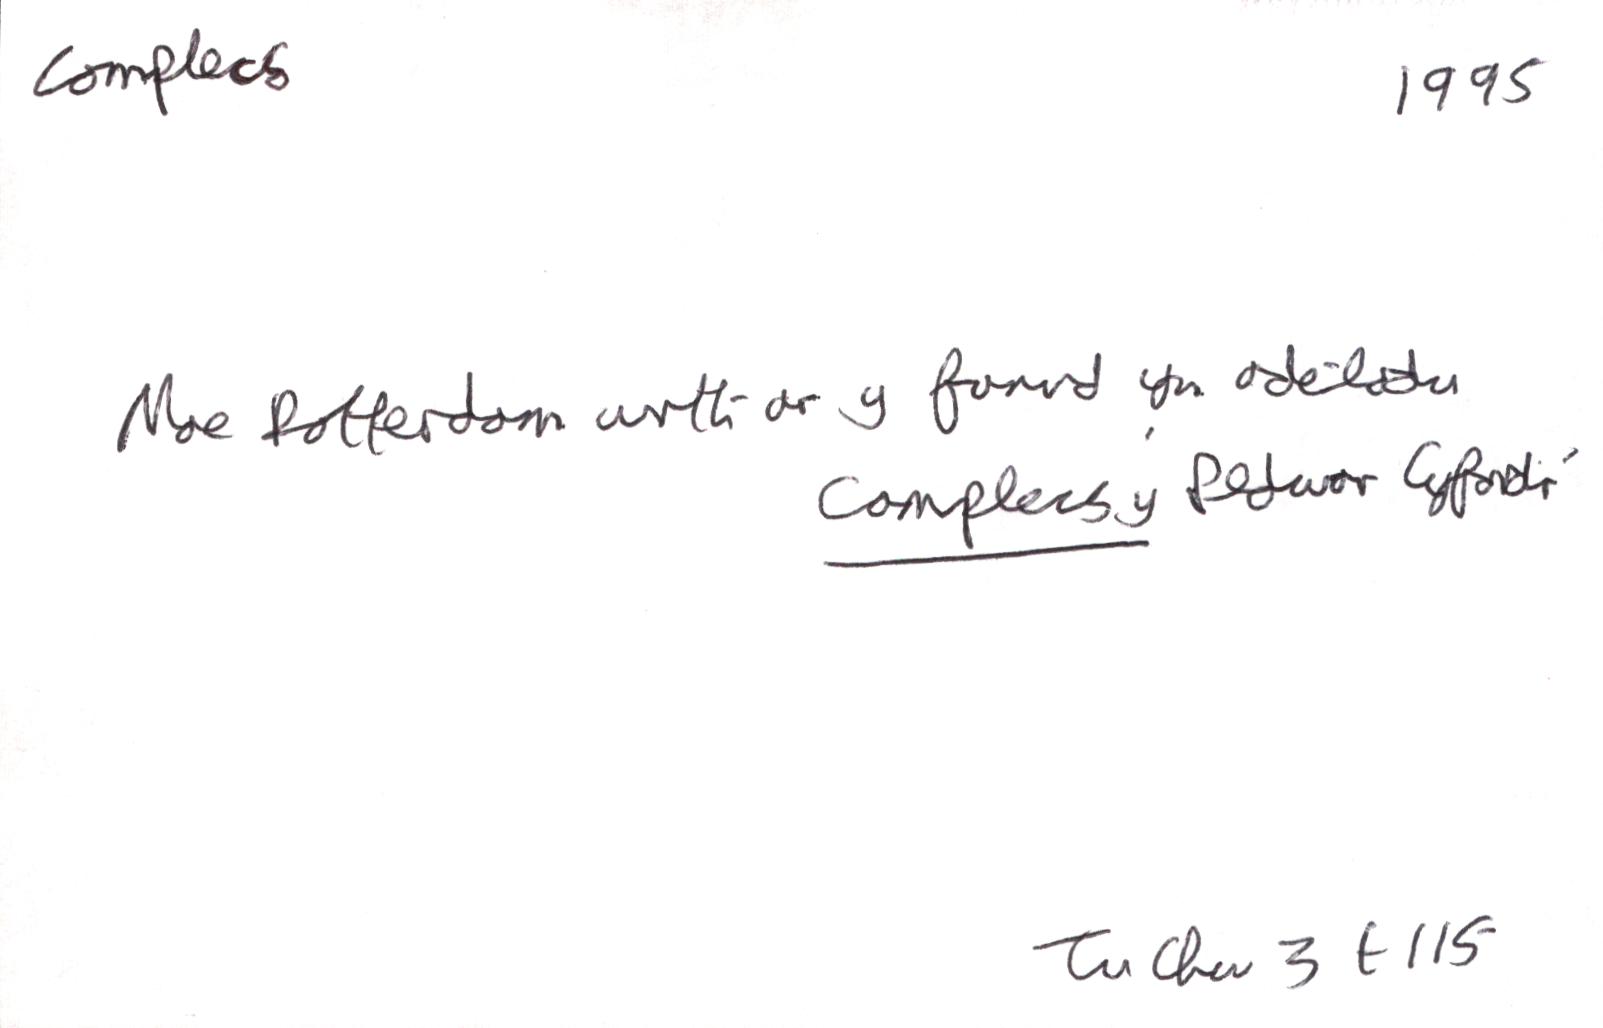 Complecs
1995
Mae Rotterdam wrth ar y ffurud yn adeiladu
Complecs y Pedwar Cyfandir
Tu Chw 3 t 115